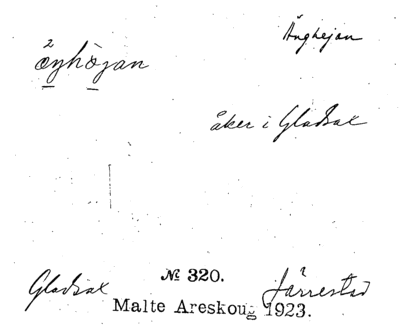 Änghejan
åker i Gladsax
№ 320.
Gladsax Järrestad
Malte Areskoug 1923.